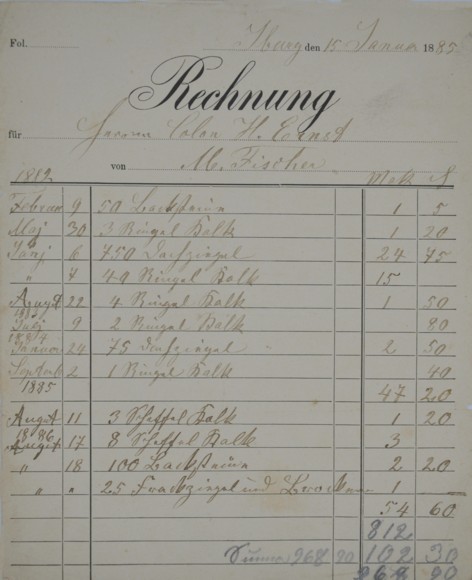 Fol. Iburg den 15 Januar 1885
Rechnung
für Herrn Colon H. Ernst
von M. Fischer
1882 Mk
Februar 9 50 Backsteine 1 5
Maj 30 3 Ringel Kalk 1 20
Junj 6 750 Dachziegel 24 75
" 7 40 Ringel Kalk 15
Augst 22 4 Ringel Kalk 1 50
Julj 9 2 Ringel Kalk 80
1884
Januar 24 75 Dachziegel 2 50
Septemb 2 1 Ringel Kalk 40
1885 47 20
Augst 11 3 Scheffel Kalk 1 20
1886
Augst 17 8 Scheffel Kalk 3
" 18 100 Backsteine 2 20
" " 25 und 1
54 60
812
Summa 968 90 102 30
968 90